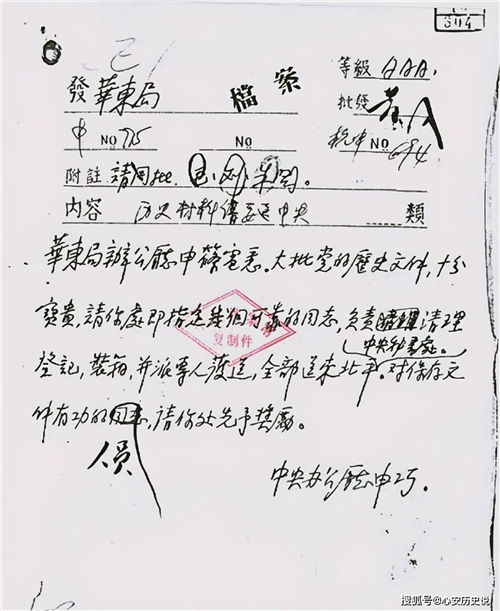 304
發 華東局
檔案
等級 AAA.
批發
中 NO 725
NO
NO 694
附註 請
内容 历史材料 中央 類
華東局辦公廳申篠電悉。大批党的歷史文件，十分
寶貴，請你處即指定幾個可靠的同志，負責清理
中央秘書處。
登記，裝箱，并派專人護送，全部送来北平。对保存文
件有功的
人員
，請你处先予獎勵。
复制件
中央办公廳申巧。
搜狐号@心安历史说